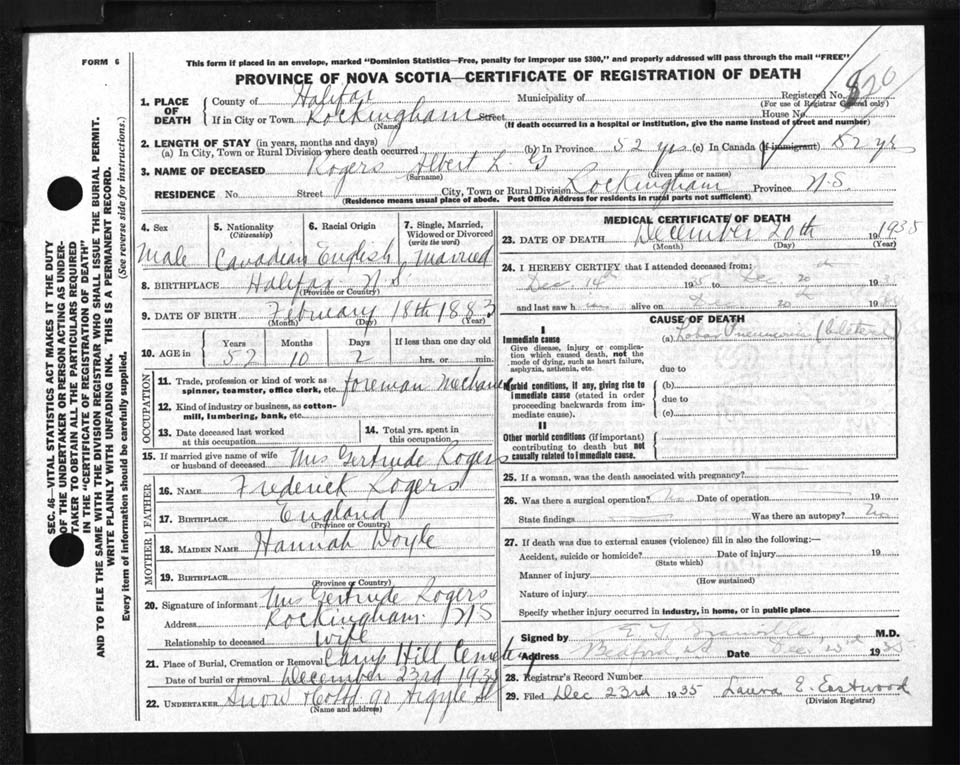 FORM 6
This form if placed in an envelope, marked "Dominion Statistics—Free, penalty for improper use $300," and properly addressed will pass through the mail "FREE"
PROVINCE OF NOVA SCOTIA—CERTIFICATE OF REGISTRATION OF DEATH
1. PLACE OF DEATH
County of Halifax Municipality of Registered No.
(For use of Registrar General only)
If in City or Town Rockingham Street House No.
(Name) (If death occurred in a hospital or institution, give the name instead of street and number)
2. LENGTH OF STAY (in years, months and days)
(a) In City, Town or Rural Division where death occurred (b) In Province 52 yrs (c) In Canada (if immigrant) 52 yrs
3. NAME OF DECEASED Rogers Albert L. G
(Surname) (Given name or names)
RESIDENCE No. Street City, Town or Rural Division Rockingham Province N.S.
(Residence means usual place of abode. Post Office Address for residents in rural parts not sufficient)
4. Sex 5. Nationality (Citizenship) 6. Racial Origin 7. Single, Married, Widowed or Divorced (write the word)
Male Canadian English Married
8. BIRTHPLACE Halifax N S
(Province or Country)
9. DATE OF BIRTH February 18th 1883
(Month) (Day) (Year)
10. AGE in Years Months Days If less than one day old
52 10 2 hrs. or min.
OCCUPATION
11. Trade, profession or kind of work as spinner, teamster, office clerk, etc. foreman Mechanic
12. Kind of industry or business, as cotton-mill, lumbering, bank, etc.
13. Date deceased last worked at this occupation
14. Total yrs. spent in this occupation
15. If married give name of wife or husband of deceased Mrs Gertrude Rogers
FATHER
16. NAME Frederick Rogers
17. BIRTHPLACE England
(Province or Country)
MOTHER
18. MAIDEN NAME Hannah Doyle
19. BIRTHPLACE
(Province or Country)
20. Signature of informant Mrs Gertrude Rogers
Address Rockingham N S
Relationship to deceased Wife
21. Place of Burial, Cremation or Removal Camp Hill Cemete
Date of burial or removal December 23rd 1935
22. UNDERTAKER Snow & Co Ltd 90 Argyle St
(Name and address)
MEDICAL CERTIFICATE OF DEATH
23. DATE OF DEATH December 20th 19 1935
(Month) (Day) (Year)
24. I HEREBY CERTIFY that I attended deceased from:
Dec. 14th 1935 to Dec. 20th 1935
and last saw h im alive on Dec 20th 1935
CAUSE OF DEATH
I
Immediate cause (a) Lobar Pneumonia (bilateral)
Give disease, injury or complication which caused death, not the mode of dying, such as heart failure, asphyxia, asthenia, etc.
due to
Morbid conditions, if any, giving rise to immediate cause (stated in order proceeding backwards from immediate cause).
(b)
due to
(c)
II
Other morbid conditions (if important) contributing to death but not causally related to immediate cause.
25. If a woman, was the death associated with pregnancy?
26. Was there a surgical operation? No Date of operation 19
State findings Was there an autopsy? No
27. If death was due to external causes (violence) fill in also the following:—
Accident, suicide or homicide? Date of injury 19
(State which)
Manner of injury
(How sustained)
Nature of injury
Specify whether injury occurred in industry, in home, or in public place
Signed by E M.D.
Address Bedford, N.S. Date Dec 1935
28. Registrar's Record Number
29. Filed Dec 23rd 1935 Laura E. Eastwood
(Division Registrar)
SEC. 46—VITAL STATISTICS ACT MAKES IT THE DUTY
OF THE UNDERTAKER OR PERSON ACTING AS UNDER-
TAKER TO OBTAIN ALL THE PARTICULARS REQUIRED
IN THE "CERTIFICATE OF REGISTRATION OF DEATH"
AND TO FILE THE SAME WITH THE DIVISION REGISTRAR WHO SHALL ISSUE THE BURIAL PERMIT.
WRITE PLAINLY WITH UNFADING INK. THIS IS A PERMANENT RECORD.
Every item of information should be carefully supplied. (See reverse side for instructions.)